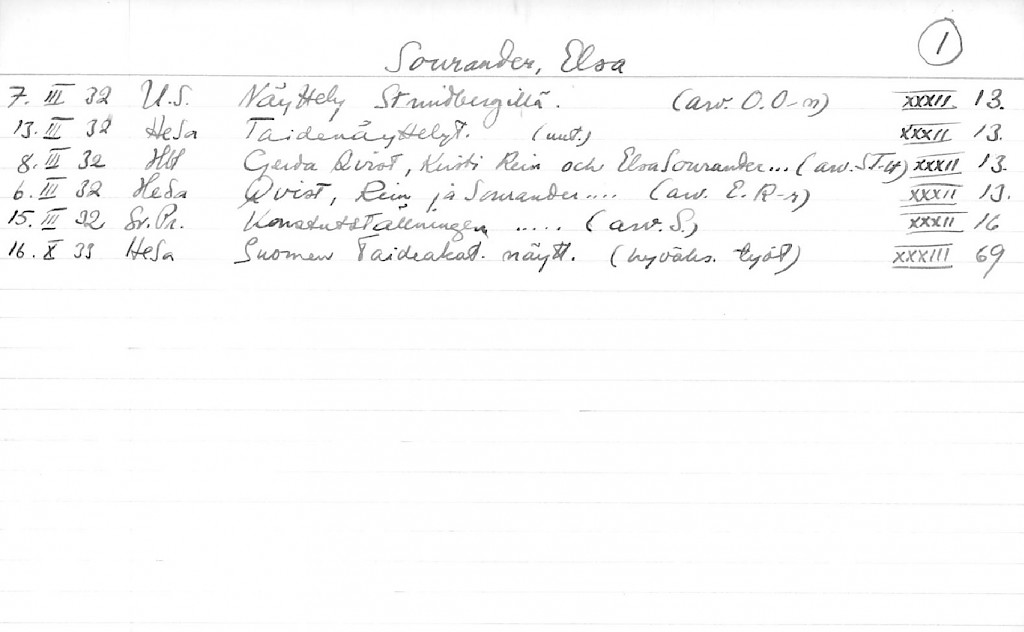 1
Sourander, Elsa
7. III 32 U.S. Näyttely Strindbergillä. (arv. O.O-n) XXXII 13.
13. III 32 HeSa Taidenäyttelyt. (uut.) XXXII 13.
8. III 32 Hbl Gerda Qvist, Kirsti Rein och Elsa Sourander... (arv. S.T-w) XXXII 13.
6. III 32 HeSa Qvist, Rein ja Sourander.... (arv. E. R-r) XXXII 13.
15. III 32 Sv.Pr. Konstutställningen ..... (arv. S.) XXXII 16
16. X 33 HeSa Suomen Taideakat. näytt. (hyväks. työt) XXXIII 69